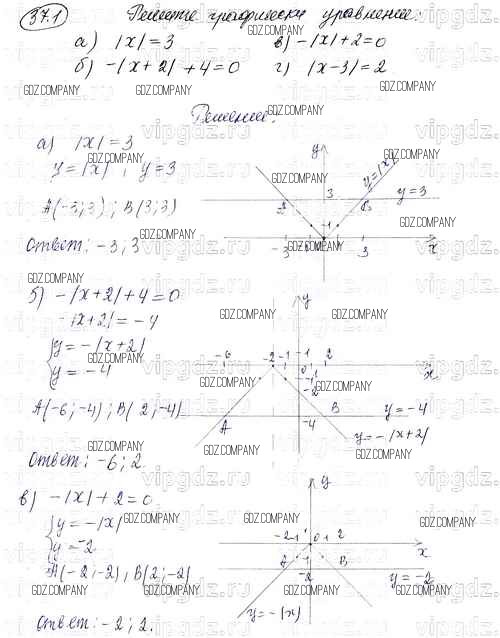 37.1 Решите графически уравнение:
а) |x| = 3 в) -|x| + 2 = 0
б) -|x + 2| + 4 = 0 г) |x - 3| = 2
Решение:
а) |x| = 3
y = |x|, y = 3
A(-3; 3); B(3; 3)
Ответ: -3; 3
y
y = |x|
3
y = 3
B
1
-3
3
x
б) -|x + 2| + 4 = 0
-|x + 2| = -4
{y = -|x + 2|
y = -4
A(-6; -4); B(2; -4)
Ответ: -6; 2.
y
-6 -2 -1 0 1 2
x
-2
A B y = -4
-4
y = -|x + 2|
в) -|x| + 2 = 0
{y = -|x|
y = -2
A(-2; -2), B(2; -2)
Ответ: -2; 2.
y
-2 -1 0 1 2
x
A -1 B
-2
y = -2
y = -|x|
GDZ.COMPANY
vipgdz.ru